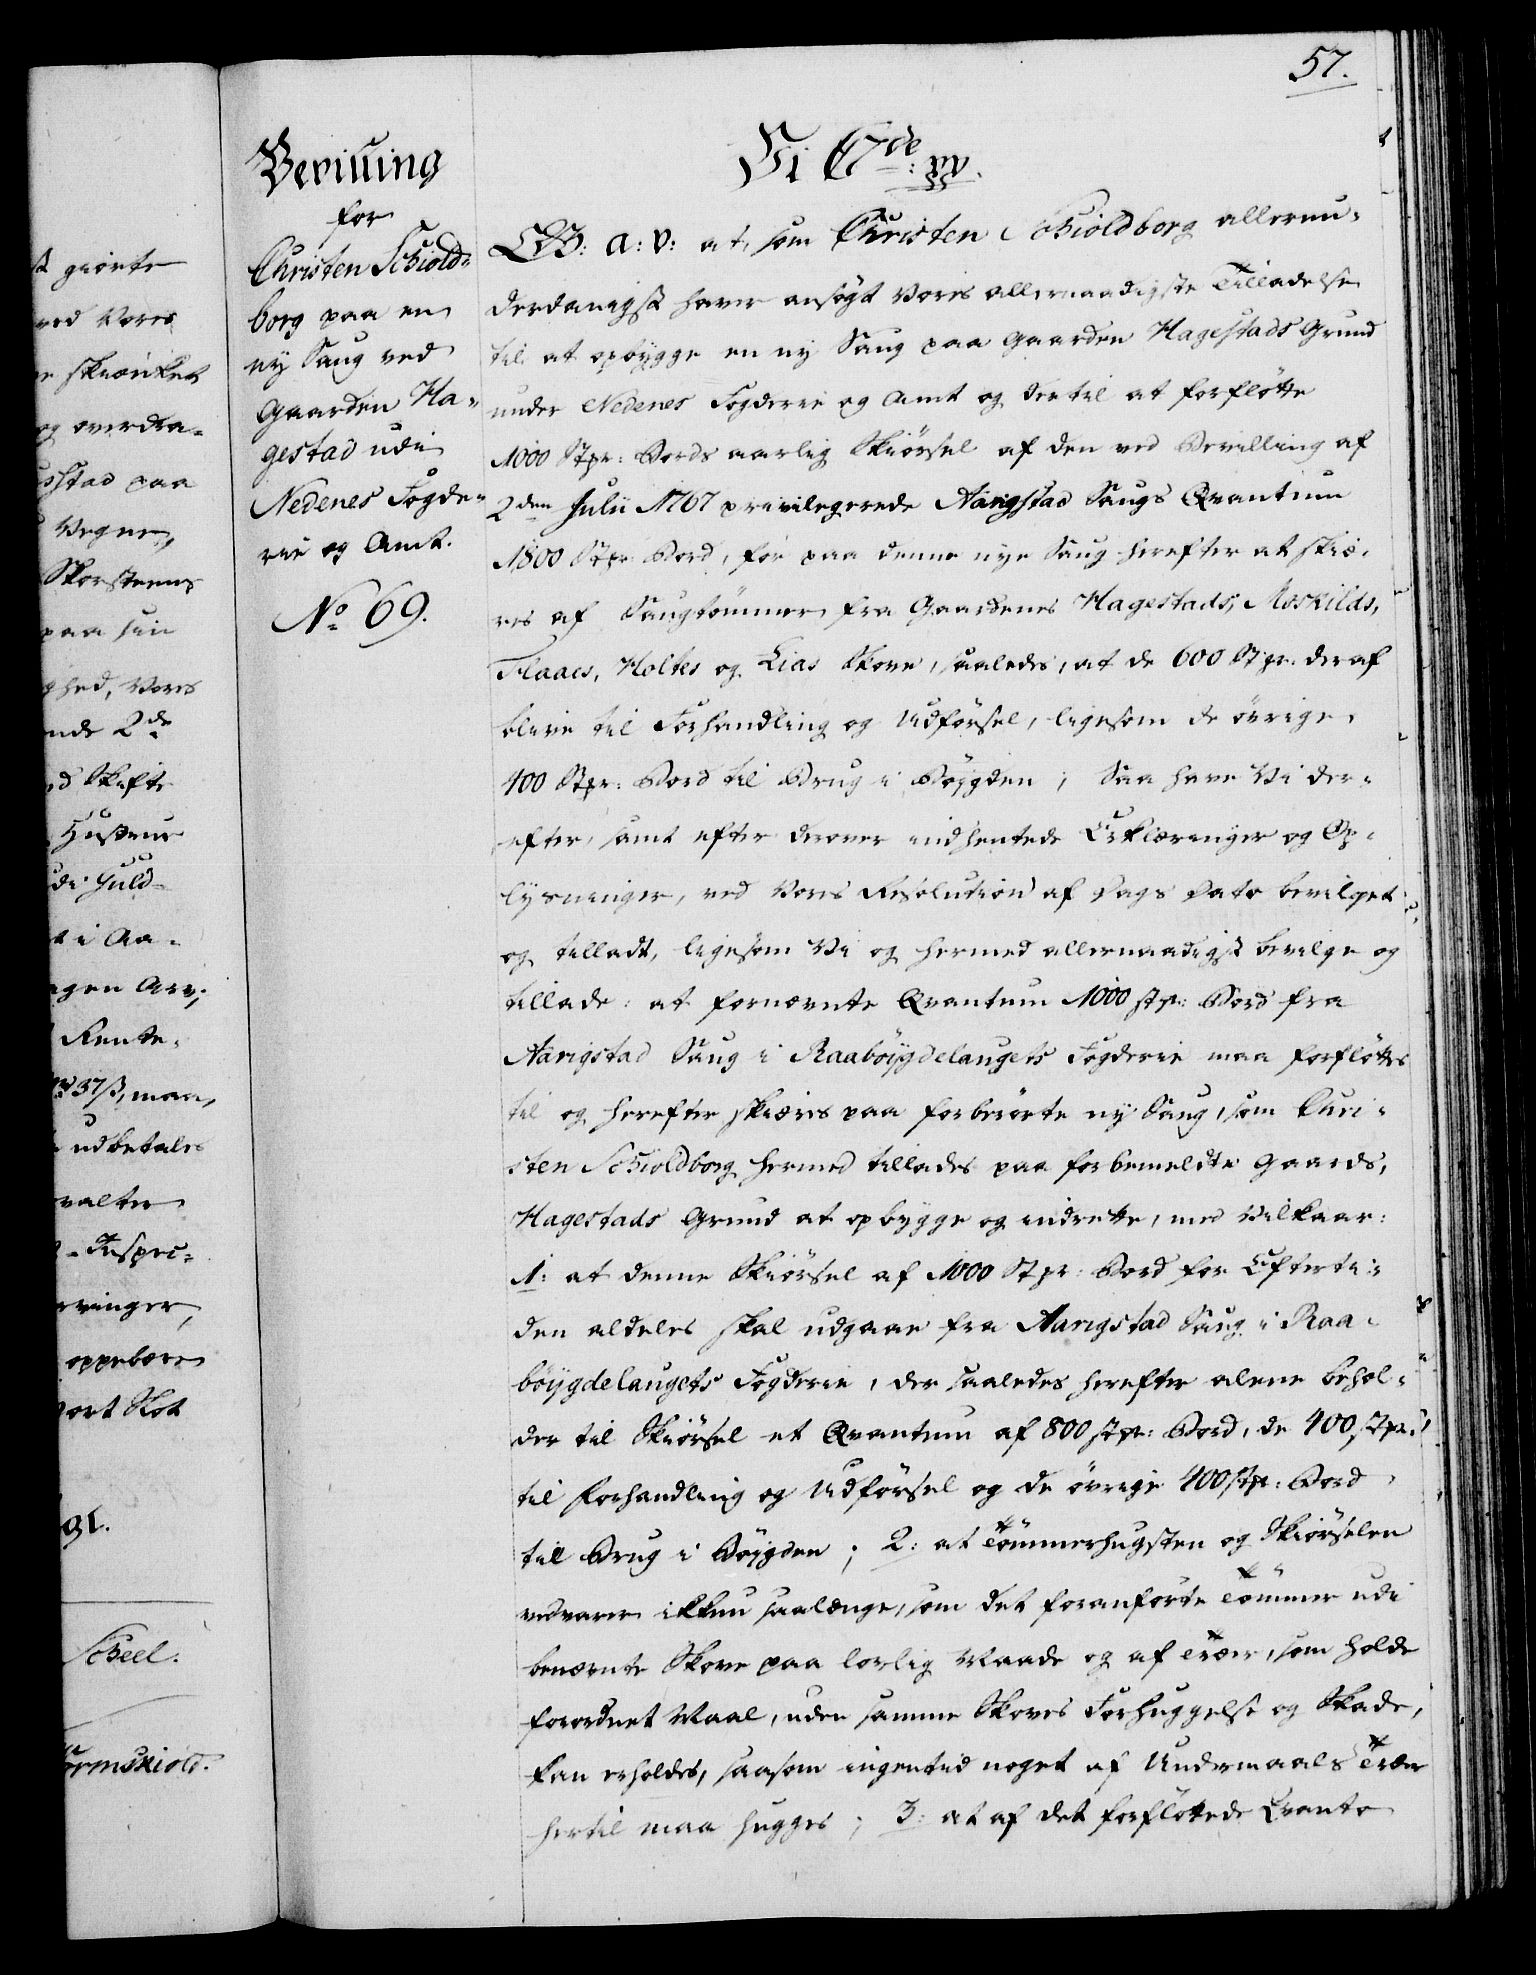 57.
Bevilling
for
Christen Schiold-
borg paa en
ny Saug ved
Gaarden Ha-
gestad udi
Nedenes Fogde-
rie og Amt.
No 69.
Vi C 7de: pp.
G: A: V: at, som Christen Schioldborg allerun-
derdanigst haver ansøgt Vores allernaadigste Tilladelse
til at opbygge en ny Saug paa Gaarden Hagestads Grund
under Nedenes Fogderie og Amt og dertil at forfløtte
1000 Stpr: Bords aarlig Skiørsel af den ved Bevilling af
2den Julii 1767 privilegerede Aarigstad Saugs Qvantum
1800 Stpr: Bord, for paa denne nye Saug herefter at skiæ-
res af Saugtømmer fra Gaardenes Hagestads, Moskilds,
Flaaes, Holtes og Lias Skove, saaledes, at de 600 Stpr: deraf
blive til Forhandling og Udførsel, ligesom de øvrige
400 Stpr: Bord til Brug i Bøygden; Saa have Vi der-
efter, samt efter derover indhentede Erklæringer og Op-
lysninger, ved Vores Resolution af Dags Dato bevilget
og tilladt, ligesom Vi og hermed allernaadigst bevilge og
tillade: at fornævnte Qvantum 1000 stpr: Bord fra
Aarigstad Saug i Raabøygdelaugets Fogderie maa forfløttes
til og herefter skiæres paa forberørte ny Saug, som Chri-
sten Schioldborg hermed tillades paa forbemeldte Gaards,
Hagestads Grund at opbygge og indrette, med Vilkaar:
1: at denne Skiørsel af 1000 Stpr: Bord for Efterti-
den aldeles skal udgaae fra Aarigstad Saug i Raa-
bøygdelaugets Fogderie, der saaledes herefter alene behol-
der til Skiørsel et Qvantum af 800 stpr: Bord, de 400 stpr:
til Forhandling og Udførsel og de øvrige 400 stpr: Bord
til Brug i Bøygden; 2: at Tømmerhugsten og Skiørselen
vedvarer ikkun saalænge, som det foranførte Tømmer udi
benævnte Skove paa lovlig Maade og af Træer, som holde
forordnet Maal, uden samme Skoves Forhuggelse og Skade,
kan erholdes, saasom ingentid noget af Undermaals Træer
hertil maa hugges; 3: at af det forfløttede Qvanto
giørte
ved Vores
skiænket
og overdra-
stad paa
Vegne,
Skorsteens
paa sin
ghed, Vores
nde 2de
ed Skifte
Hustrue
udi Juld-
t i Aa-
agen Arv;
Rente-
37 ß, maa,
udbetales
valter
Inspec-
rvinger,
oppebære
ort Slot
91.
Scheel.
ormskiold.